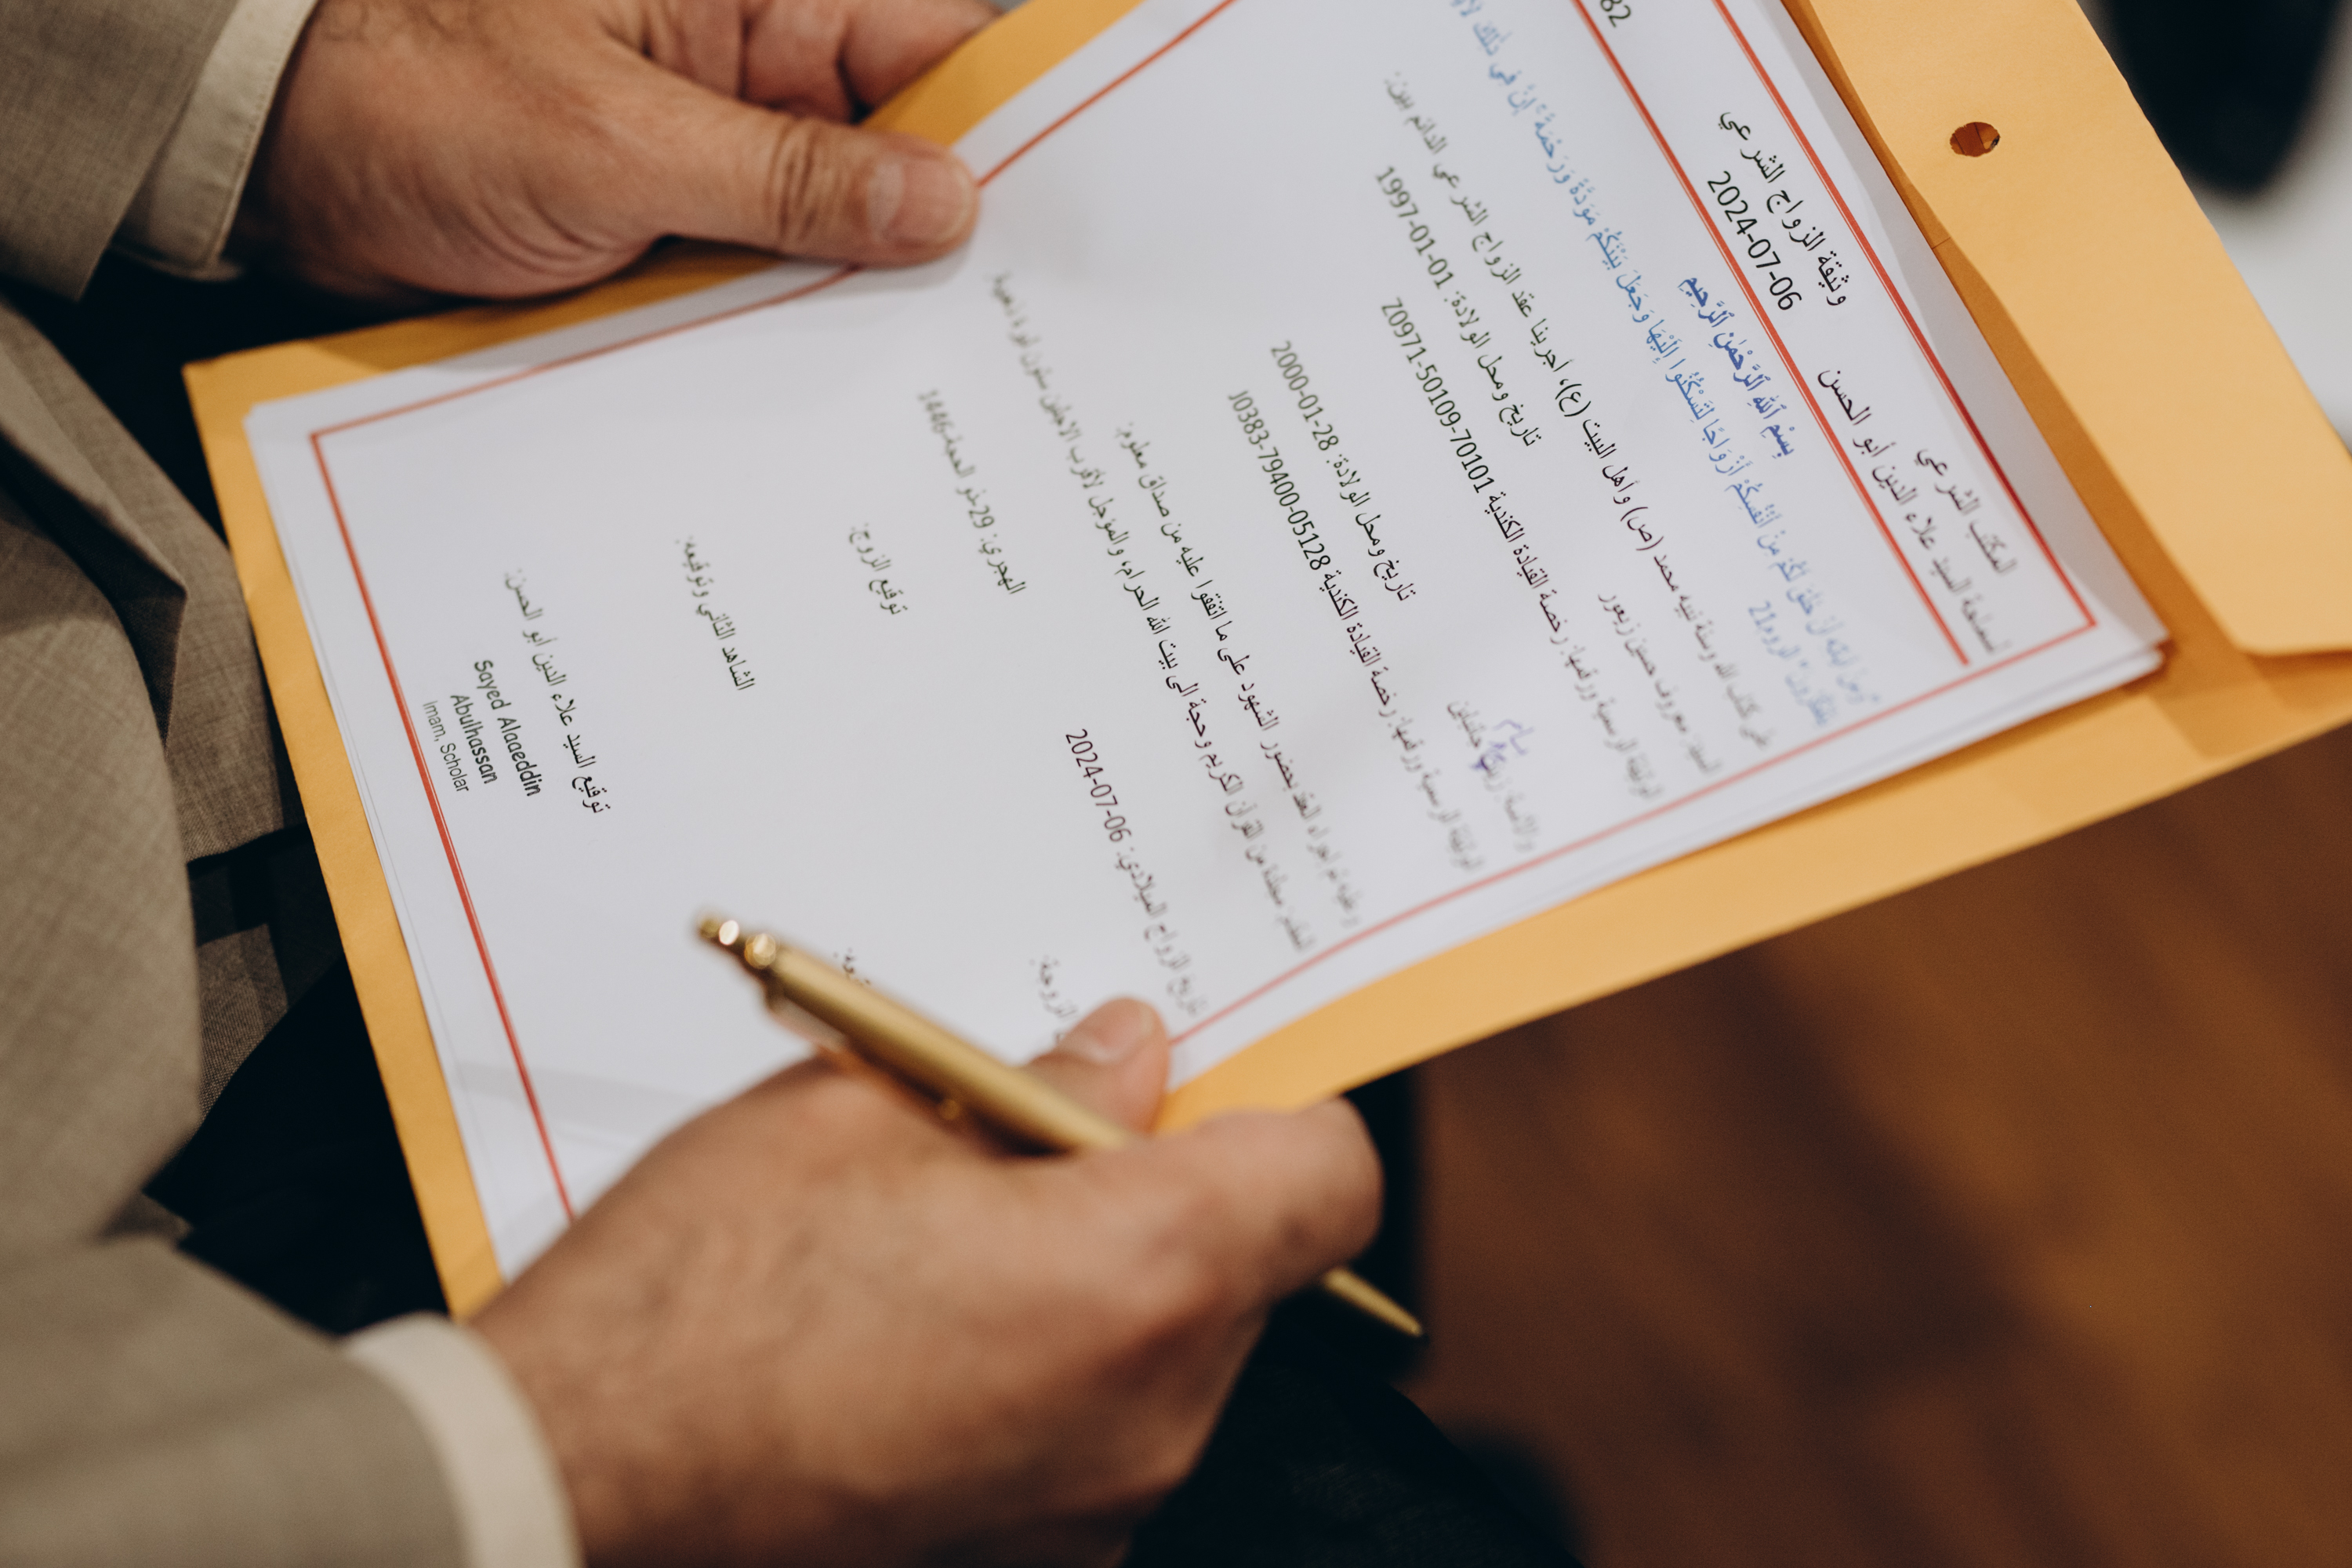 المكتب الشرعي
لسماحة السيد علاء الدين أبو الحسن
وثيقة الزواج الشرعي
2024-07-06
82
بِسْمِ ٱللَّهِ ٱلرَّحْمَٰنِ ٱلرَّحِيمِ
أَنْ خَلَقَ لَكُمْ مِنْ أَنْفُسِكُمْ أَزْوَاجًا لِتَسْكُنُوا إِلَيْهَا وَجَعَلَ بَيْنَكُمْ مَوَدَّةً وَرَحْمَةً إِنَّ فِي ذَلِكَ
الروم21
على كتاب الله وسنة نبيه محمد (ص) وأهل البيت (ع)، أجرينا عقد الزواج الشرعي الدائم بين:
السيد: معروف حسين زيعور تاريخ ومحل الولادة: 1997-01-01
الوثيقة الرسمية ورقمها: رخصة القيادة الكندية Z0971-50109-70101
والآنسة: تاريخ ومحل الولادة: 2000-01-28
الوثيقة الرسمية ورقمها: رخصة القيادة الكندية J0383-79400-05128
وعليه تم إجراء العقد بحضور الشهود على ما اتفقوا عليه من صداق معلوم:
من القرآن الكريم وحجة الى بيت الله الحرام، والمؤجل لأقرب الأجلين ستون ليرة ذهبية
تاريخ الزواج الميلادي: 2024-07-06 الهجري: 29-ذو الحجة-1446
الزوجة: توقيع الزوج:
الشاهد الثاني وتوقيعه:
توقيع السيد علاء الدين أبو الحسن:
Sayed Alaaeddin
Abulhassan
Imam, Scholar